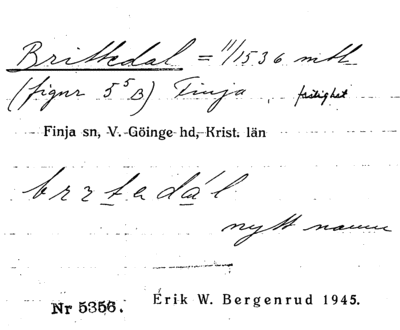 Brittedal = 11/1536 mtl
(figur 5⁵B) Finja, fastighet
Finja sn, V. Göinge hd, Krist. län
brrtadál
nytt namn
Nr 5356. Erik W. Bergenrud 1945.